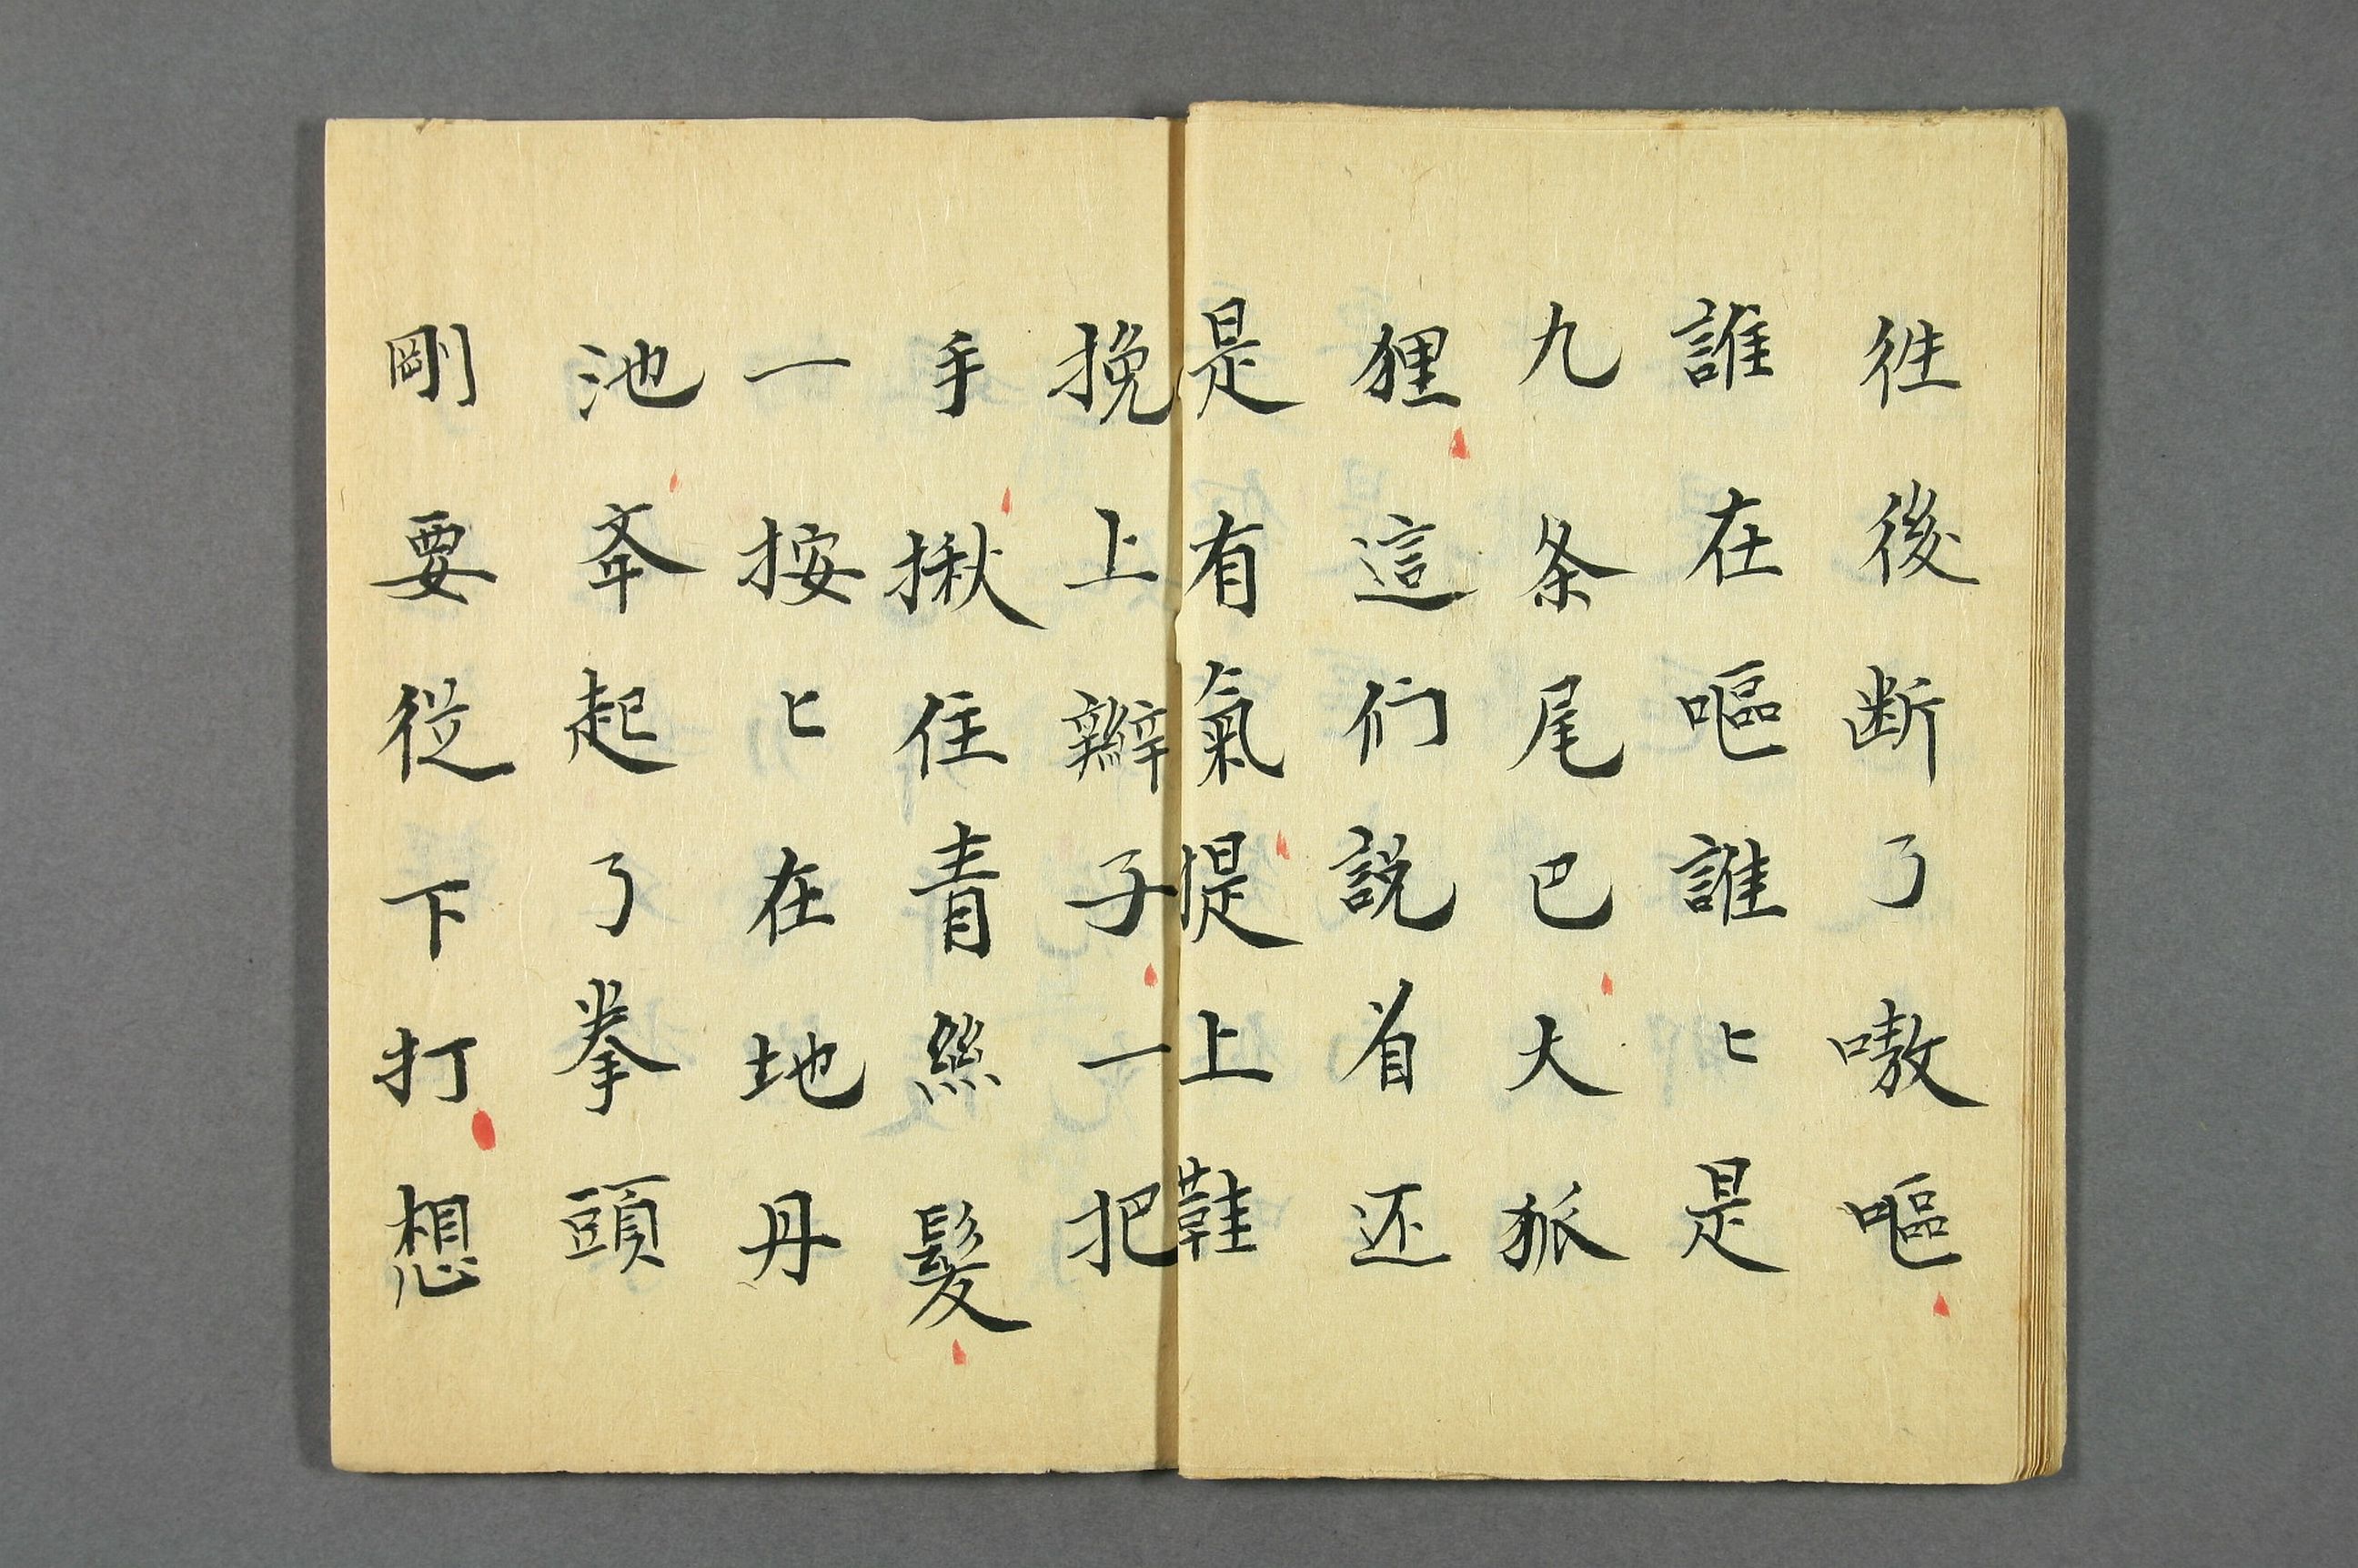 徃後断了嗷嘔
誰在嘔誰ヒ是
九条尾巴大狐
狸這们説着还
是有氣提上鞋
挽上辮子一把
手揪住青絲髮
一按ヒ在地丹
池夆起了拳頭
剛要從下打想